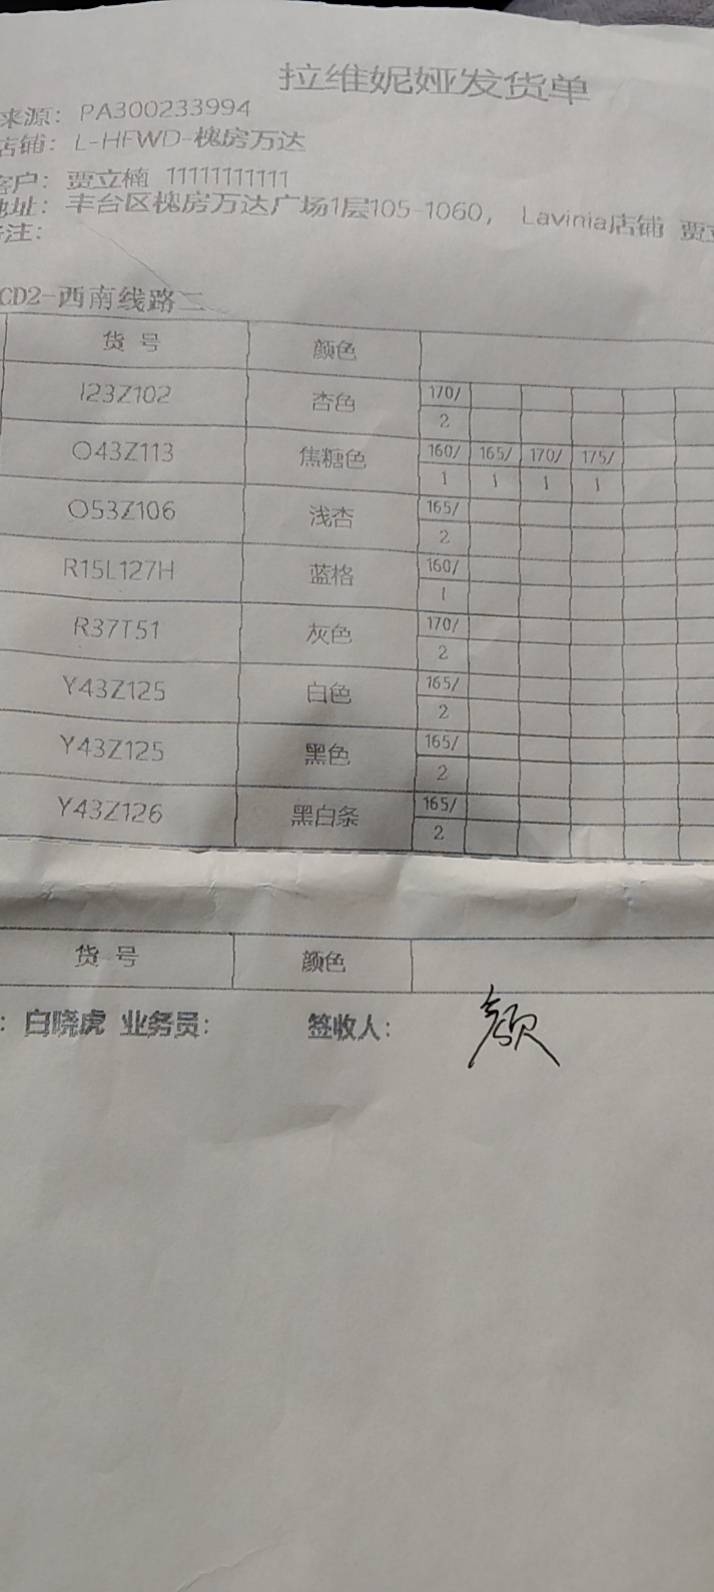 拉维妮娅发货单
来源: PA300233994
店铺: L-HFWD-槐房万达
客户: 贾立楠 11111111111
地址: 丰台区槐房万达广场1层105-1060, Lavinia店铺 贾立
备注:
CD2-西南线路二
货号 颜色
I23Z102 杏色 170/
2
O43Z113 焦糖色 160/ 165/ 170/ 175/
1 1 1 1
O53Z106 浅杏 165/
2
R15L127H 蓝格 160/
1
R37T51 灰色 170/
2
Y43Z125 白色 165/
2
Y43Z125 黑色 165/
2
Y43Z126 黑白条 165/
2
货号 颜色
: 白晓虎 业务员: 签收人: